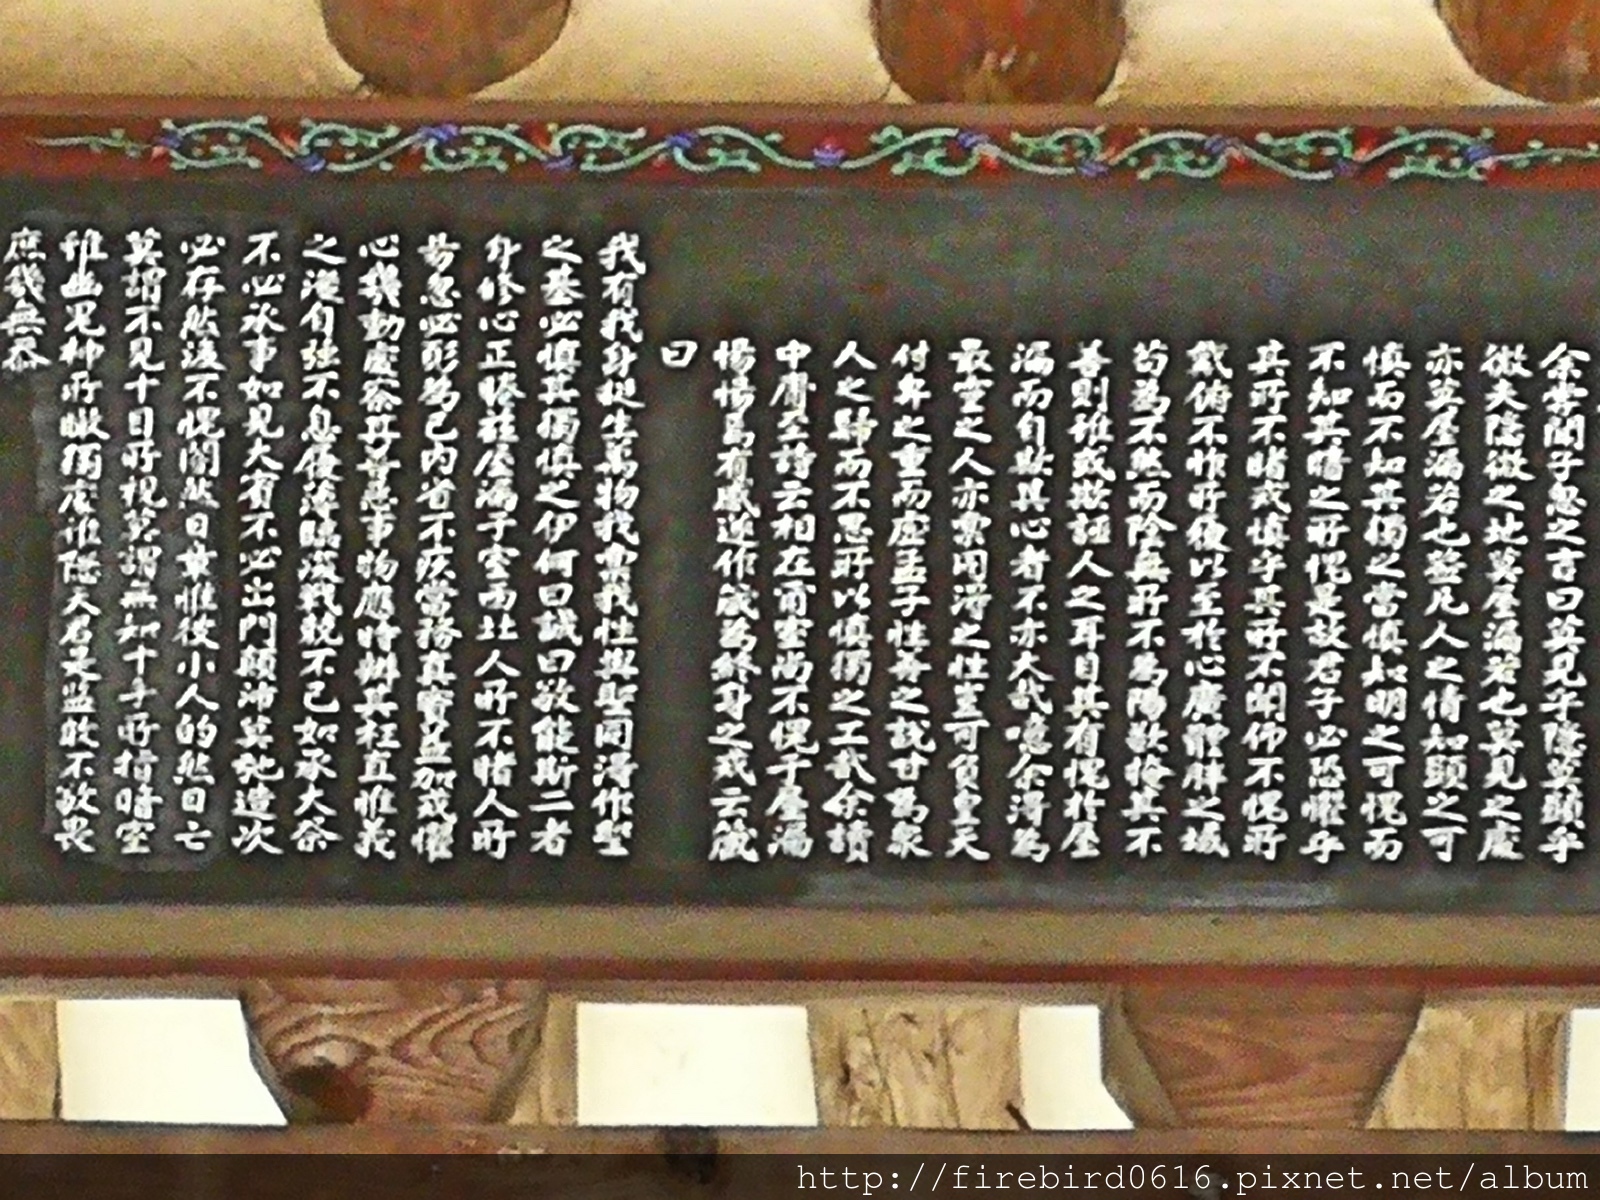 余嘗聞子思之言曰莫見乎隱莫顯乎
微夫隱微之地莫屋漏若也莫見之處
亦莫屋漏若也蓋凡人之情知顯之可
慎而不知其獨之當慎知明之可愧而
不知其暗之所愧是故君子必恐懼乎
其所不睹戒慎乎其所不聞仰不愧所
戴俯不怍所履以至於心廣體胖之域
苟為不然而陰無所不為陽欲掩其不
善則雖或欺誣人之耳目其有愧於屋
漏而自欺其心者不亦大哉噫余得為
最靈之人亦稟同得之性豈可負皇天
付畀之重而虛孟子性善之說甘為眾
人之歸而不思所以慎獨之工哉余讀
中庸至詩云相在爾室尚不愧于屋漏
惕惕焉有感遂作箴為終身之戒云箴
曰
我有我身挺生萬物我稟我性與聖同得作聖
之基必慎其獨慎之伊何曰誠曰敬能斯二者
身修心正眷玆屋漏子室西北人所不睹人所
易忽必形為己內省不疚當務真實益加戒懼
心幾動處察其善惡事物應時辨其枉直惟義
之從自强不息履薄臨深戰兢不已如承大祭
不必承事如見大賓不必出門顛沛莫弛造次
必存然後不愧闇然日章惟彼小人的然日亡
莫謂不見十目所視莫謂無知十手所指暗室
雖幽鬼神所瞰獨處誰隱天君是監敢不敬畏
庶幾無忝
http://firebird0616.pixnet.net/album